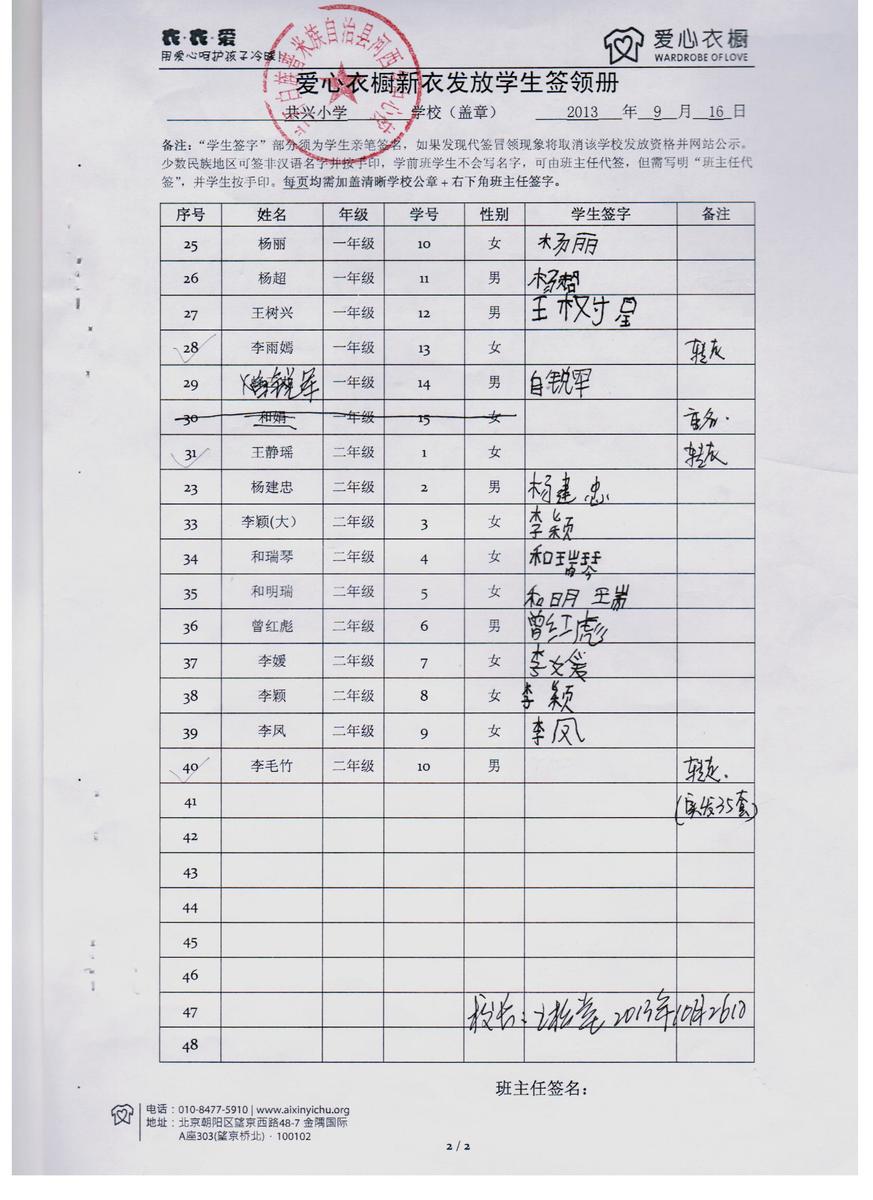 衣·衣·爱
用爱心呵护孩子冷暖!
爱心衣橱
WARDROBE OF LOVE
白族普米族自治县河西 中心校
爱心衣橱新衣发放学生签领册
共兴小学 学校（盖章） 2013 年 9 月 16 日
备注：“学生签字”部分须为学生亲笔签名，如果发现代签冒领现象将取消该学校发放资格并网站公示。
少数民族地区可签非汉语名字并按手印，学前班学生不会写名字，可由班主任代签，但需写明“班主任代
签”，并学生按手印。每页均需加盖清晰学校公章+右下角班主任签字。
序号 姓名 年级 学号 性别 学生签字 备注
25 杨丽 一年级 10 女 杨丽
26 杨超 一年级 11 男 杨
27 王树兴 一年级 12 男 王树星
28 李雨嫣 一年级 13 女 转
29 锐军 一年级 14 男 自锐军
30 和娟 一年级 15 女
31 王静瑶 二年级 1 女 转
23 杨建忠 二年级 2 男 杨建忠
33 李颖(大） 二年级 3 女 李颖
34 和瑞琴 二年级 4 女 和瑞琴
35 和明瑞 二年级 5 女 和明瑞
36 曾红彪 二年级 6 男 曾红彪
37 李媛 二年级 7 女 李媛
38 李颖 二年级 8 女 李颖
39 李凤 二年级 9 女 李凤
40 李毛竹 二年级 10 男 转
41 (实发35套)
42
43
44
45
46
47 校长： 2013年10月26日
48
班主任签名：
电话：010-8477-5910 | www.aixinyichu.org
地址：北京朝阳区望京西路48-7 金隅国际
A座303(望京桥北)·100102
2 / 2